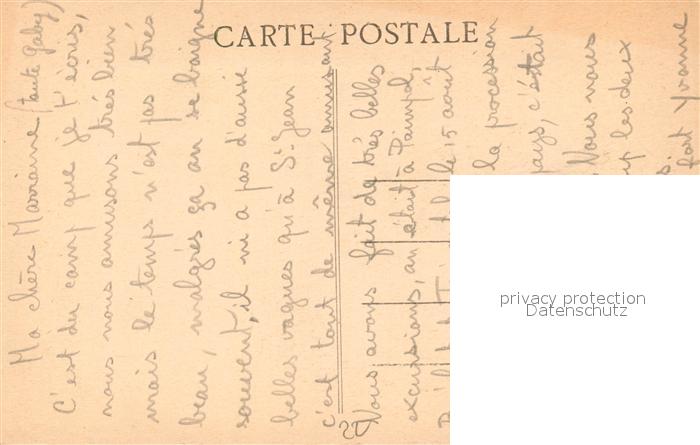 CARTE POSTALE
Ma chère Marraine (tante Gaby)
C'est du camp que je t'écris,
nous nous amusons très bien
mais le temps n'est pas très
beau, malgrès ça on se baigne
souvent, il ni a pas d'aussi
belles vagues qu'à St Jean
c'est tout de même amusant
Nous avons fait de très belles
excursions, on était à Paimpol,
le 15 août
la procession
pays, c'était
Nous nous
les deux
fort Yvonne
privacy protection
Datenschutz